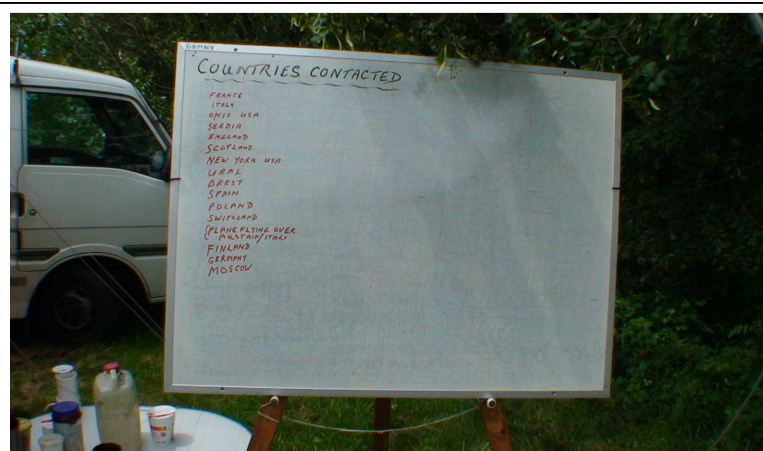 COUNTRIES CONTACTED
FRANCE
ITALY
OHIO USA
SERBIA
ENGLAND
SCOTLAND
NEW YORK USA
URAL
BREST
SPAIN
POLAND
SWITZLAND
PLANE FLYING OVER
AUSTRIA/ITALY
FINLAND
GERMANY
MOSCOW